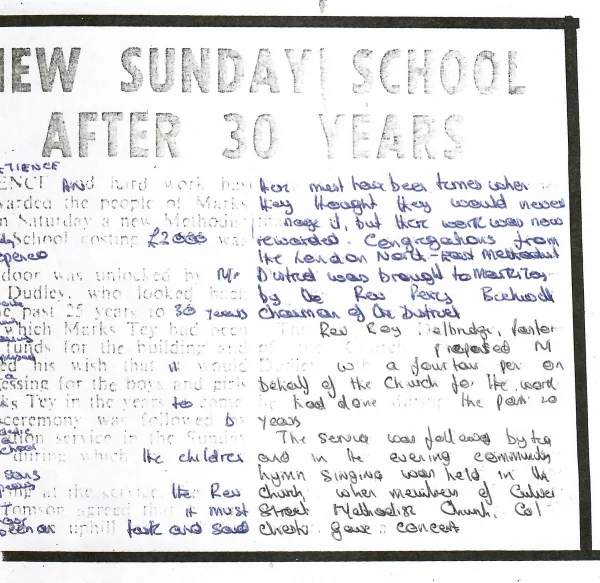 NEW SUNDAY SCHOOL
AFTER 30 YEARS
ENCE AND hard work has
warded the people of Marks
n Saturday a new Methodist
School costing £2000 was
door was unlocked by Mr
Dudley, who looked back
e past 25 years to 30 years
which Marks Tey had been
funds for the building and
ed his wish that it would
essing for the boys and girls
ks Tey in the years to come
ceremony was followed b
ation service in the Sunday
during which the children
sang
at the service, the Rev
Tomson agreed that it must
been an uphill task and said
there must have been times when
they thought they would never
manage it, but their work was now
rewarded. Congregations from
the London North-East Methodist
District was brought to Marks Tey
by the Rev Percy
Chairman of the District
The Rev Roy Delbridge, Pastor
proposed M
Dudley with a fountain pen on
behalf of the Church for the work
he had done during the past 20
years
The service was followed by tea
and in the evening community
hymn singing was held in the
Church, when members of Culver
Street Methodist Church, Col
chester gave a concert